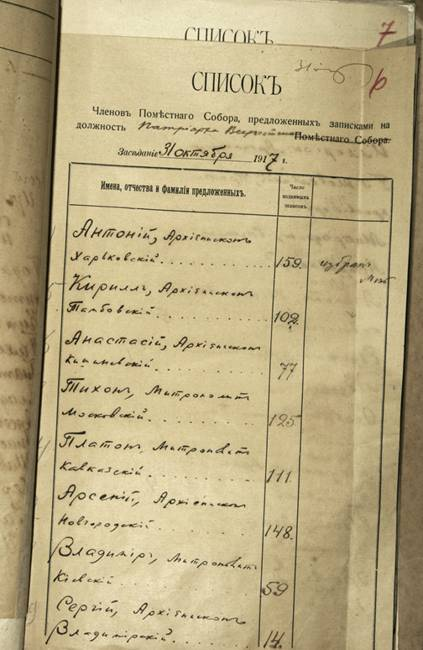 СПИСОКЪ
7
СПИСОКЪ
6
Членовъ Помѣстнаго Собора, предложенныхъ записками на
должность Патріарха Помѣстнаго Собора.
Засѣданіе 31 октября 1917 г.
Имена, отчества и фамиліи предложенныхъ.
Число
поданныхъ
записокъ.
Антоній, Архіепископъ
Харьковскій 159. избранъ
Кириллъ, Архіепископъ
Тамбовскій 102.
Анастасій, Архіепископъ
Кишиневскій 77
Тихонъ, Митрополитъ
Московскій 125.
Платонъ, Митрополитъ
Кавказскій 111.
Арсеній, Архіепископъ
Новгородскій 148.
Владиміръ, Митрополитъ
Кіевскій 59
Сергій, Архіепископъ
Владимірскій 14.